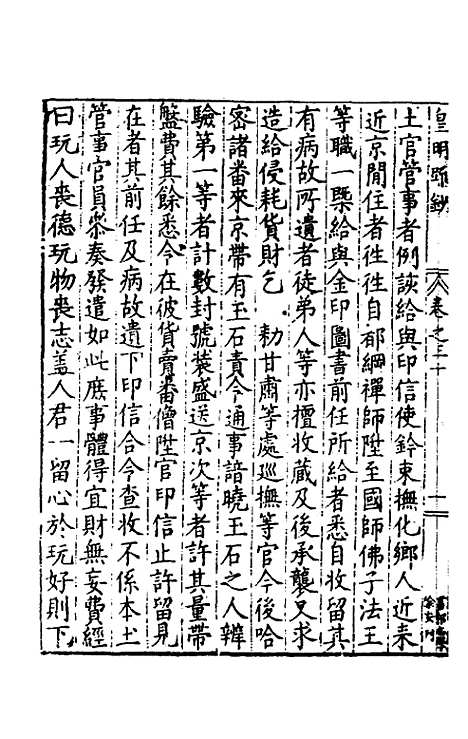 皇明疏鈔 卷之三十 一
土官管事者例該給與印信使鈐束撫化鄉人近来
近京閒住者徃徃自都綱禪師陞至國師佛子法王
等職一槩給與金印圖書前任所給者悉自收留其
有病故所遺者徒弟人等亦擅收藏及後承襲又求
造給侵耗貨財乞 勑甘肅等處巡撫等官今後哈
密諸畨来京帶有玉石責令通事諳曉玉石之人辨
驗第一等者計數封號裝盛送京次等者許其量帶
盤費其餘悉令在彼貨賣畨僧陞官印信止許留見
在者其前任及病故遺下印信合令查收不係本土
管事官員叅奏發遣如此庶事體得宜財無妄費經
曰玩人丧德玩物丧志盖人君一留心於玩好則下